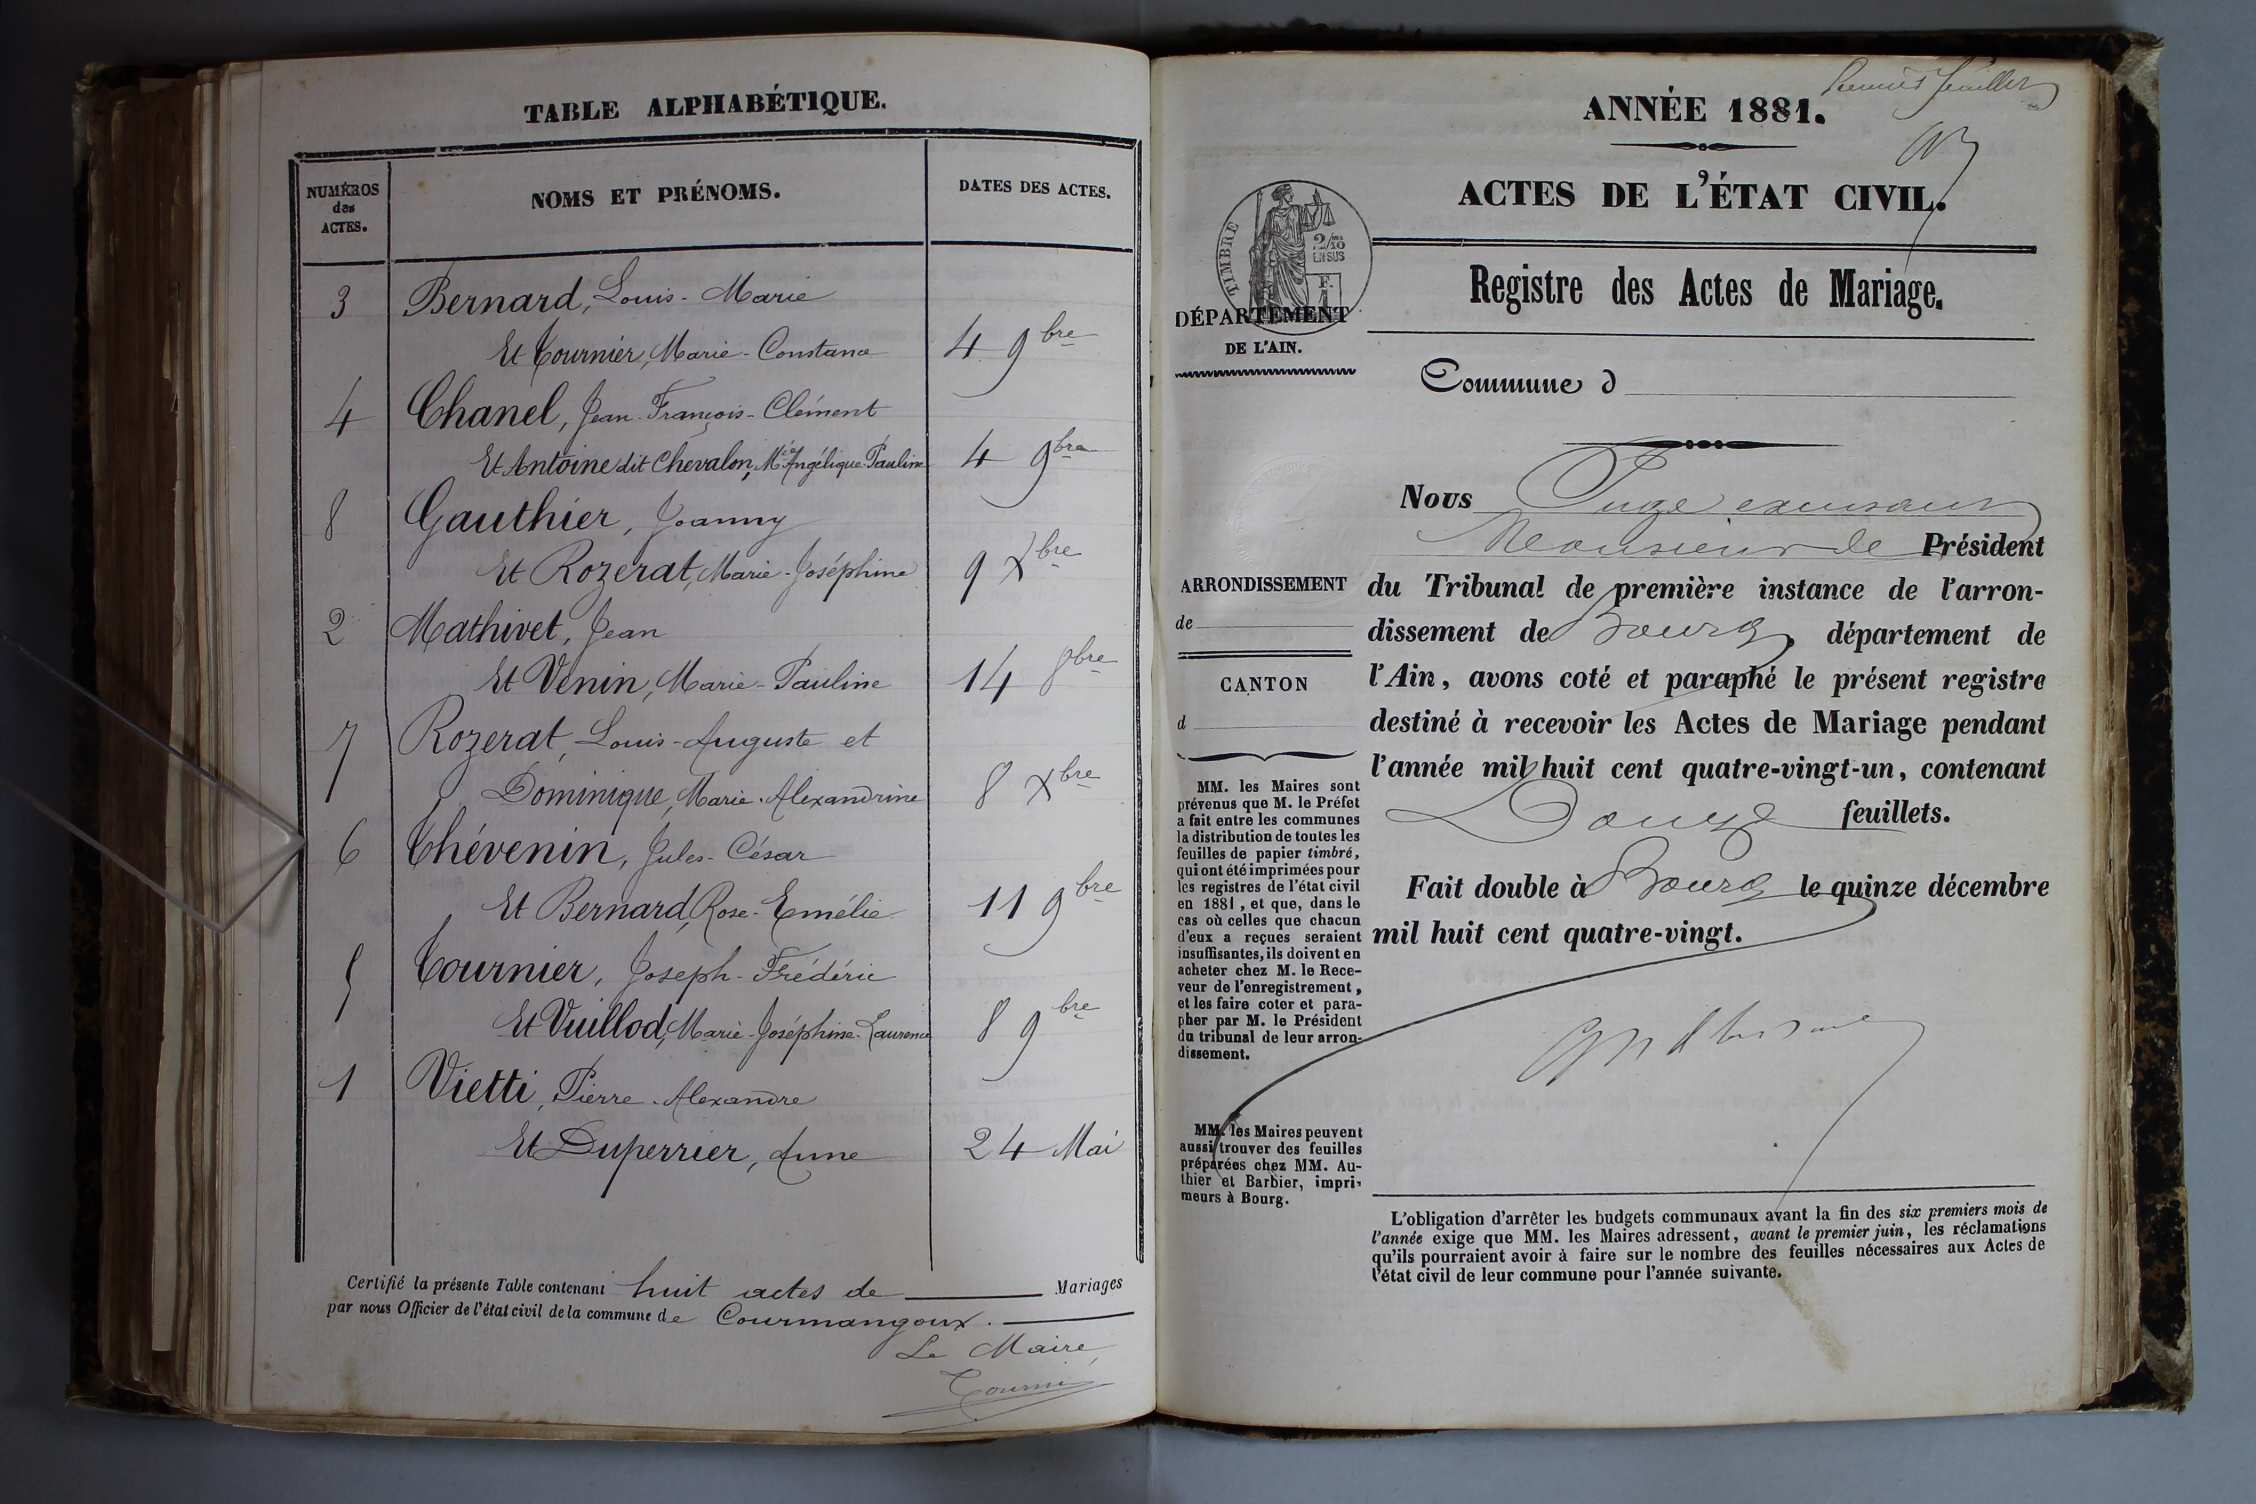 TABLE ALPHABÉTIQUE.
NUMÉROS des ACTES.
NOMS ET PRÉNOMS.
DATES DES ACTES.
3 Bernard, Louis-Marie
Et Tournier, Marie-Constance 4 9bre
4 Chanel, Jean-François-Clément
Et Antoine dit Chevalon, Mie Angélique-Pauline 4 9bre
8 Gauthier, Joanny
Et Rozerat, Marie-Joséphine 9 Xbre
2 Mathivet, Jean
Et Venin, Marie-Pauline 14 8bre
7 Rozerat, Louis-Auguste et
Dominique, Marie-Alexandrine 8 Xbre
6 Thévenin, Jules-César
Et Bernard, Rose-Emélie 11 9bre
5 Tournier, Joseph-Frédéric
Et Vuillod, Marie-Joséphine-Laurence 8 9bre
1 Vietti, Pierre-Alexandre
Et Duperrier, Anne 24 Mai
Certifié la présente Table contenant huit actes de Mariages
par nous Officier de l'état civil de la commune de Courmangoux.
Le Maire,
Tournier
Premier feuillet
ANNÉE 1881.
ACTES DE L'ÉTAT CIVIL.
TIMBRE
2/10
EN SUS
F.
1
DÉPARTEMENT
DE L'AIN.
Registre des Actes de Mariage.
Commune d
ARRONDISSEMENT
de
CANTON
d
MM. les Maires sont
prévenus que M. le Préfet
a fait entre les communes
la distribution de toutes les
feuilles de papier timbré,
qui ont été imprimées pour
les registres de l'état civil
en 1881, et que, dans le
cas où celles que chacun
d'eux a reçues seraient
insuffisantes, ils doivent en
acheter chez M. le Rece-
veur de l'enregistrement,
et les faire coter et para-
pher par M. le Président
du tribunal de leur arron-
dissement.
MM. les Maires peuvent
aussi trouver des feuilles
préparées chez MM. Au-
thier et Barbier, impri-
meurs à Bourg.
Nous Juge
Monsieur le Président
du Tribunal de première instance de l'arron-
dissement de Bourg département de
l'Ain, avons coté et paraphé le présent registre
destiné à recevoir les Actes de Mariage pendant
l'année mil huit cent quatre-vingt-un, contenant
Douze feuillets.
Fait double à Bourg le quinze décembre
mil huit cent quatre-vingt.
L'obligation d'arrêter les budgets communaux avant la fin des six premiers mois de
l'année exige que MM. les Maires adressent, avant le premier juin, les réclamations
qu'ils pourraient avoir à faire sur le nombre des feuilles nécessaires aux Actes de
l'état civil de leur commune pour l'année suivante.